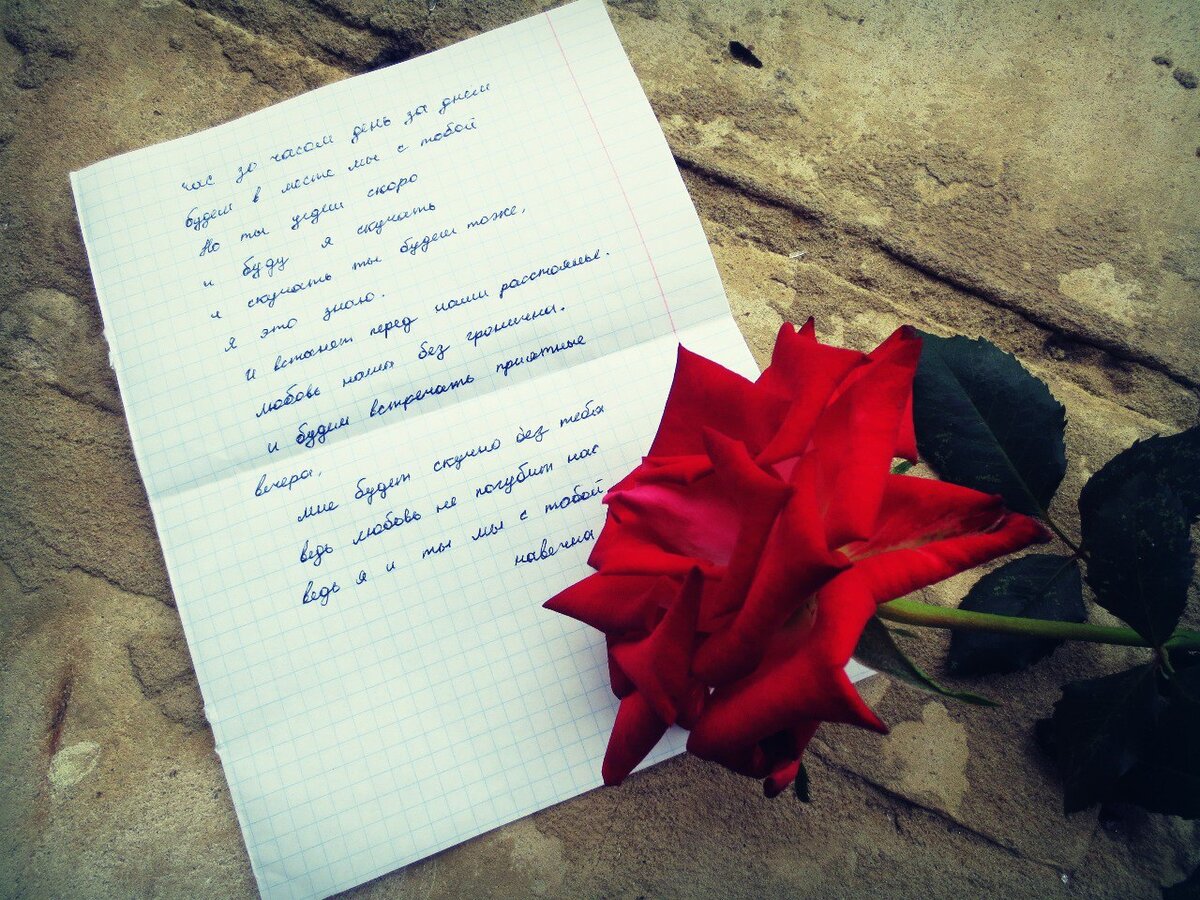 час за часом день за днем
будем в месте мы с тобой
Но ты уедеш скоро
и буду я скучать
и скучать ты будеш тоже,
я это знаю.
и встанет перед нами расстоянье.
любовь наша без граничны.
и будем встречать приятные
вечера,
мне будет скучно без тебя
ведь любовь не погубит нас
ведь я и ты мы с тобой
навечна